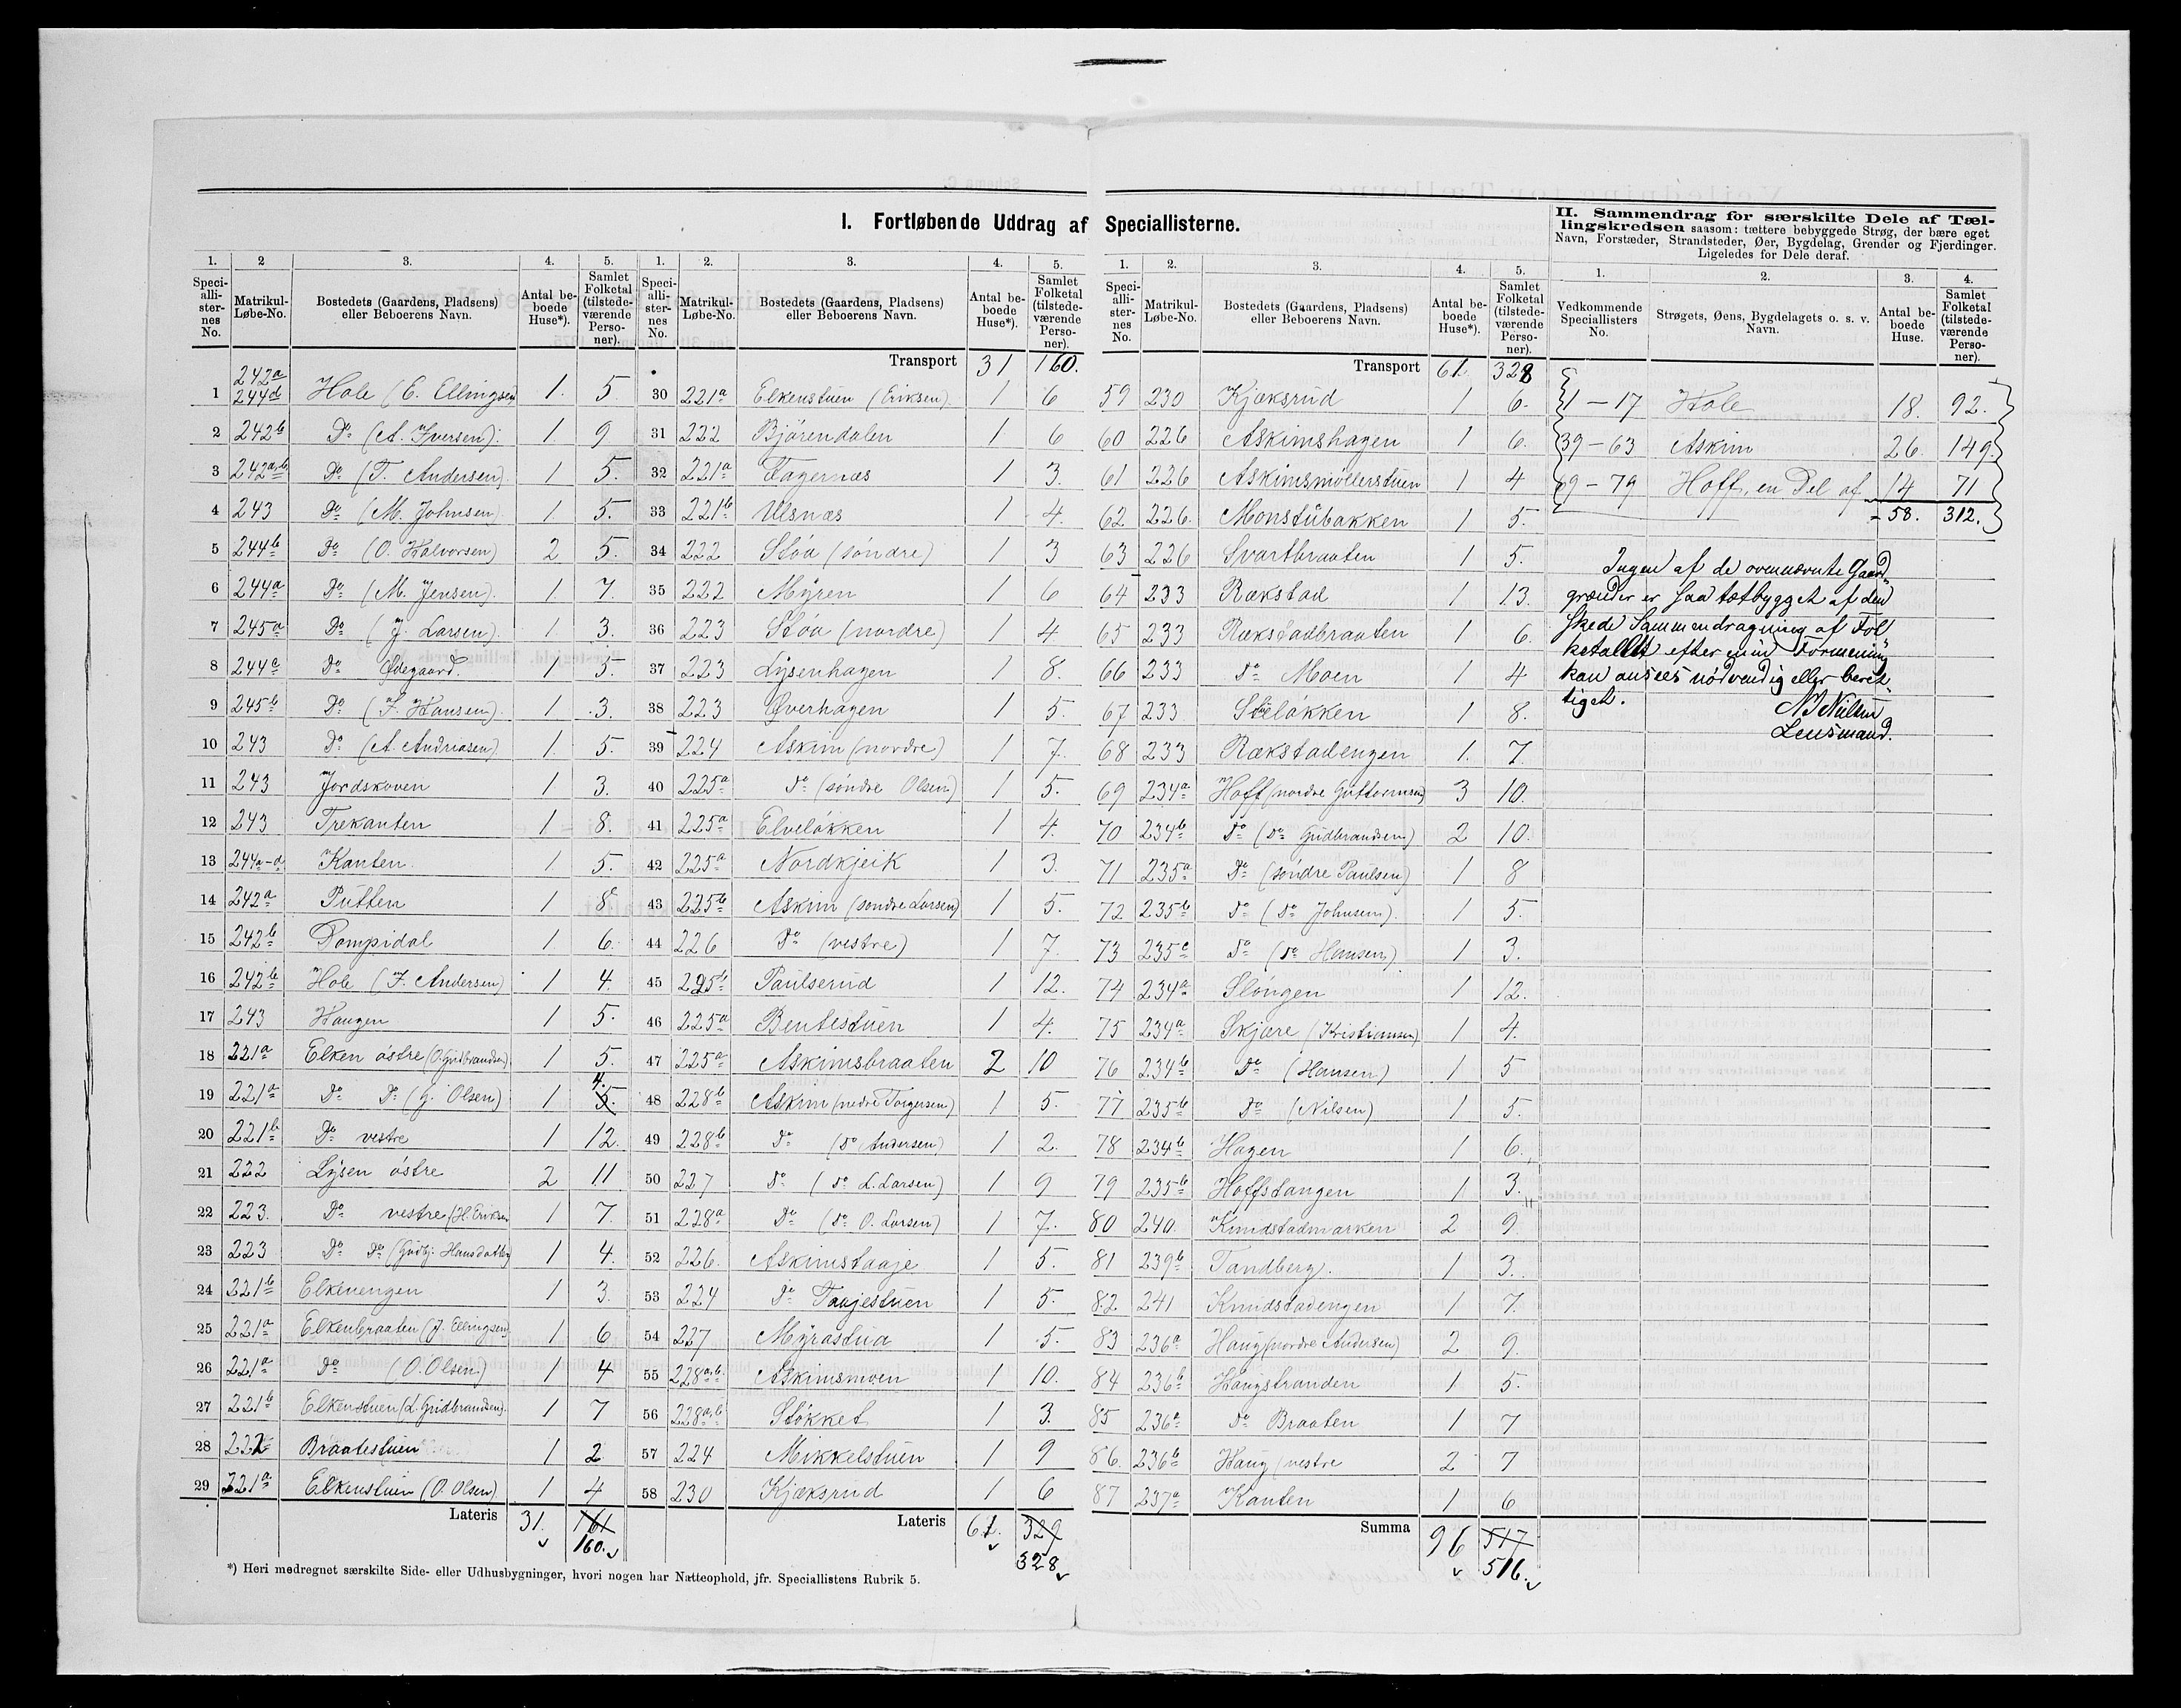 I. Fortløbende Uddrag af Speciallisterne.
II. Sammendrag for særskilte Dele af Tæl-
lingskredsen saasom: tættere bebyggede Strøg, der bære eget
Navn, Forstæder, Strandsteder, Øer, Bygdelag, Grender og Fjerdinger.
Ligeledes for Dele deraf.
1. 2 3. 4. 5.
Speciallisternes No. Matrikul-Løbe-No. Bostedets (Gaardens, Pladsens) eller Beboerens Navn. Antal beboede Huse*). Samlet Folketal (tilstedeværende Personer).
1 242a 244d Hole (E. Ellingsen) 1. 5.
2 242b Do (A. Iversen) 1. 9
3 242a,b Do (T. Andersen) 1 5.
4 243 Do (M. Johnsen) 1 5.
5 244b Do (O. Halvorsen) 2 5.
6 244a Do (M. Jensen) 1 7.
7 245a Do (J. Larsen) 1. 3.
8 244c Do Ødegaard. 1 5.
9 245b Do (F. Hansen) 1 3.
10 243 Do (A. Andreasen) 1. 5.
11 243 Jordskoven 1 3.
12 243 Trekanten 1 8.
13 244a-d Kanten 1 5.
14 242a Putten 1 8
15 242b Pompidal 1 6.
16 242b Hole (F. Andersen) 1 4.
17 243 Haugen 1 5.
18 221a Elken østre (O. Gudbrandsen) 1 5.
19 221a Do Do (G. Olsen) 1 5. 4.
20 221b Do vestre 1 12.
21 222 Lysen østre 2 11
22 223. Do vestre (H. Eriksen 1 7.
23 223 Do Do (Gudbj. Hansdatter) 1 4.
24 221b Elkenengen 1 3.
25 221a Elkenbraaten (J. Ellingsen) 1 6
26 221a Do (O. Olsen) 1 4
27 221b Elkenstuen (L. Gudbrandsen). 1 7
28 222 Braatestuen 1 2
29 221a Elkenstuen (O. Olsen) 1 4
Lateris 31. 161
160.
1. 2. 3. 4. 5.
Speciallisternes No. Matrikul-Løbe-No. Bostedets (Gaardens, Pladsens) eller Beboerens Navn. Antal beboede Huse*). Samlet Folketal (tilstedeværende Personer).
Transport 31 160.
30 221a Elkenstuen (Eriksen). 1 6
31 222 Bjørendalen 1 6
32 221a Fagernæs 1 3.
33 221b Ulsnæs 1 4.
34 222 Støa (søndre) 1 3
35 222 Myren 1 6
36 223 Støa (nordre) 1 4
37 223 Lysenhagen 1 8.
38 223 Øverhagen 1 5.
39 224 Askim (nordre) 1 7.
40 225a Do (søndre Olsen) 1 5.
41 225a Elveløkken 1 4.
42 225a Nordkjeik 1 3.
43 225b Askim (søndre Larsen) 1 5.
44 226 Do (vestre) 1 7.
45 225b Paulserud 1 12.
46 225a Bentestuen 1 4.
47 225a Askimsbraaten 2 10
48 228b Askim (nedre Torgersen) 1 5.
49 228b Do (Do Andersen) 1 2.
50 227 Do (Do L. Larsen) 1 9
51 228a Do (Do O. Larsen) 1 7.
52 226. Askimstaaje 1 5.
53 224 Do Taajestuen 1 5.
54 227 Myrastua 1 5.
55 228a,b Askimsmoen 1 10.
56 228a,b Støkket 1 3.
57 224 Mikkelstuen 1 9
58 230 Kjæksrud 1 6
Lateris 61. 329
328
1. 2. 3. 4. 5.
Speciallisternes No. Matrikul-Løbe-No. Bostedets (Gaardens, Pladsens) eller Beboerens Navn. Antal beboede Huse*). Samlet Folketal (tilstedeværende Personer).
Transport 61. 328
59 230 Kjæksrud 1 6.
60 226 Askimshagen 1 6.
61 226 Askimsmøllerstuen 1 4
62 226. Monstubakken 1 5.
63 226 Svartbraaten 1 5.
64 233 Rækstad 1 13.
65 233 Rækstadbraaten 1 6.
66 233 Do Moen 1 4
67 233 1 8.
68 233 Rækstadengen 1. 7.
69 234a Hoff (nordre Guttormsen) 3 10.
70 234b Do (Do Gudbrandsen) 2 10.
71 235a Do (søndre Paulsen) 1 8
72 235b Do (Do Johnsen). 1 5.
73 235c Do (Do Hansen) 1 3.
74 234a Sløngen 1 12.
75 234a Skjære (Kristiansen) 1 4.
76 234b Do (Hansen) 1 5
77 235b Do (Nilsen) 1 5.
78 234b Hagen 1 6.
79 235b Hoffstangen 1 3.
80 240. Knudstadmarken 2 9.
81 239b Tandberg. 1 3.
82 241 Knudstadengen 1 7.
83 236a Haug (nordre Andersen) 2 9.
84 236b Haugstranden 1 5.
85 236a Do Braaten 1 7
86. 236b Haug (vestre 2 7
87 237a Kanten 1 6
Summa 96 517
516.
1. 2. 3. 4.
Vedkommende Speciallisters No. Strøgets, Øens, Bygdelagets o. s. v. Navn. Antal beboede Huse. Samlet Folketal (tilstedeværende Personer).
1 - 17 Hole 18. 92.
39 - 63 Askim 26. 149.
69 - 79 Hoff, en Del af 14 71
58. 312.
Ingen af de ovennævnte Gaard
grænder er saa tætbygget at den
skede Sammendragning af Fol
ketallet efter min Formening
kan ansees nødvendig eller beret
tiget.
N Nielsen
Lensmand.
*) Heri medregnet særskilte Side- eller Udhusbygninger, hvori nogen har Natteophold, jfr. Speciallistens Rubrik 5.